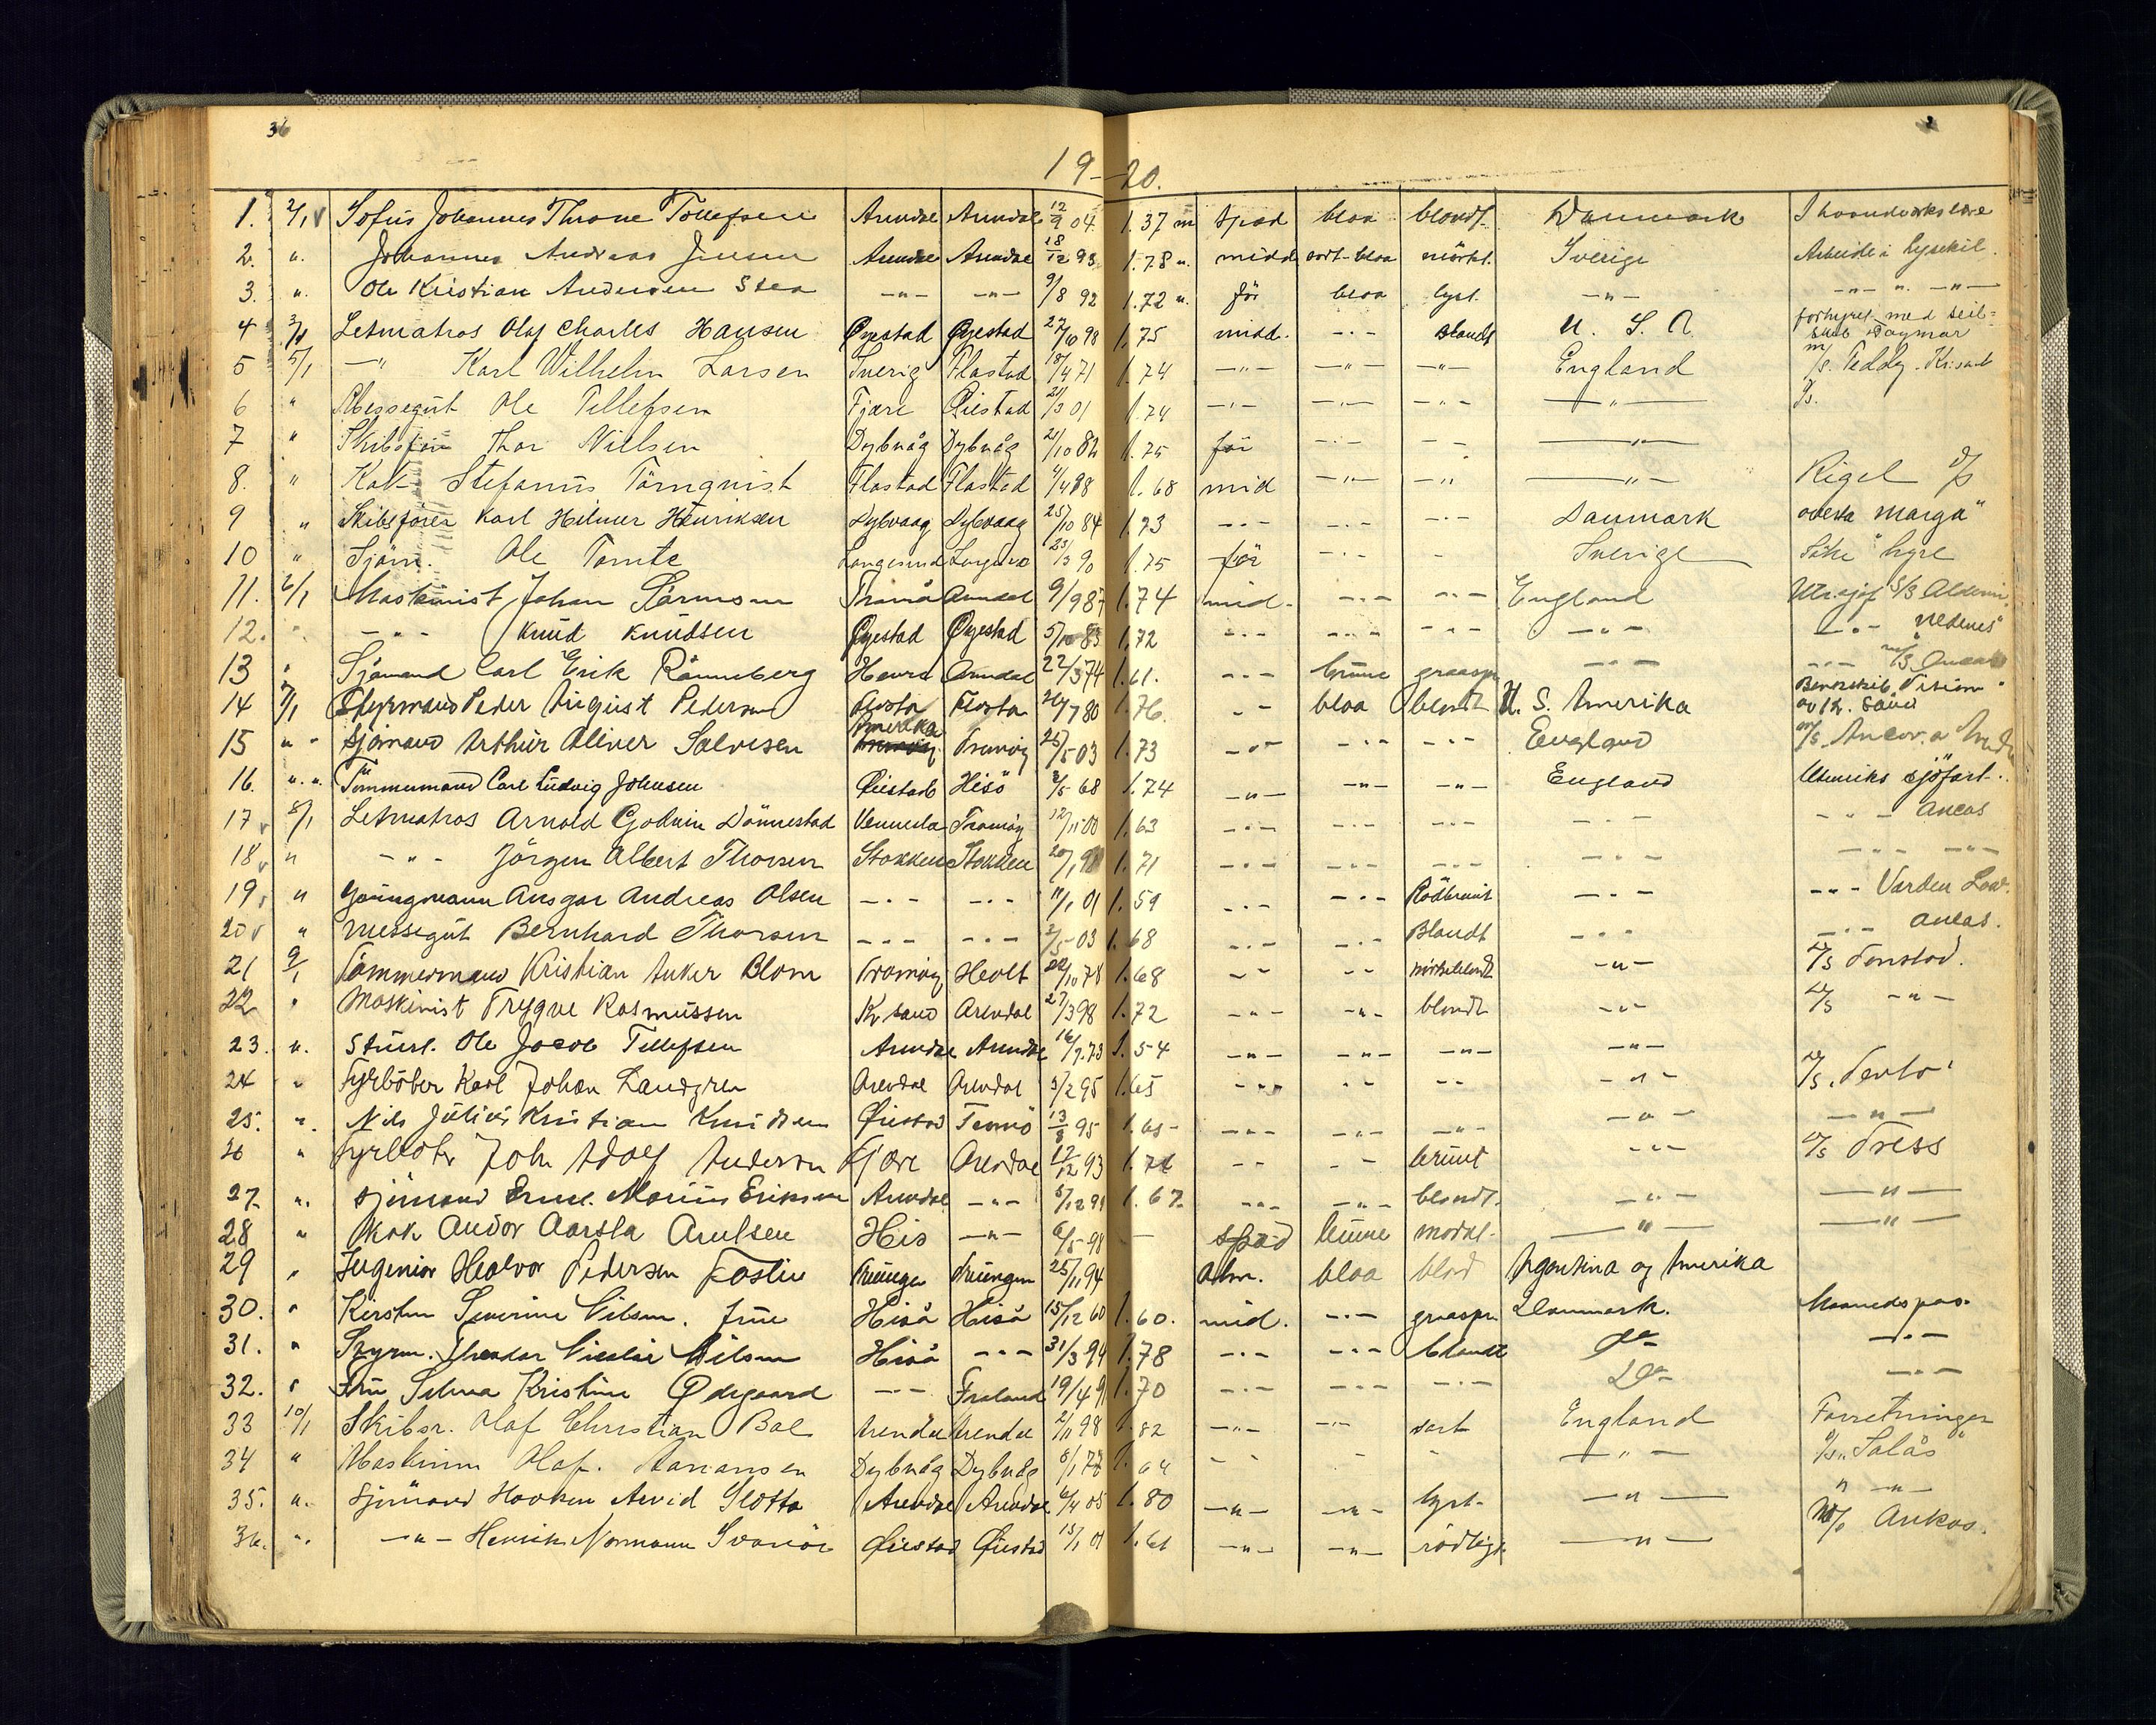 36
19-20.
1. 2/1 Sofus Johannes Throne Tollefsen Arendal Arendal 12/9 04. 1.37 m spæd blaa blondt. Danmark I haandverkslære
2. " Johannes Andreas Jensen Arendal Arendal 18/12 93 1.78 " midd sort-blaa mörkt. Sverige Arbeide i Lysekil.
3. " Ole Kristian Andersen Stea -"- -"- 9/8 92 1.72 " för blaa lyst. -"- -"- " -"-
4 3/1 Letmatros Olaf Charles Hansen Øyestad Øyestad 27/10 98 1.75 midd. -"- Blondt U. S. A. forhyret med seil=
skib Dagmar
5 5/1 -"- Karl Wilhelm Larsen Sverig Flostad 18/4 71 1.74 -"- -"- -"- England m/s. Teddy. Kr.sand
6 " Messegut Ole Tellefsen Fjære Øiestad 21/3 01 1.74 -"- -"- -"- -"-
7 " Skibsför Thor Nielsen Dybvåg Dybvåg 21/10 82 1.75 för -"- -"- -"-
8. " Kok Stefanus Törnqvist Flostad Flostad 1/4 88 1.68 mid -"- -"- -"- Rigel d/s
9 " Skibsförer Karl Hilmer Henriksen Dybvaag Dybvaag 25/10 84 1.73 -"- -"- -"- Danmark Marga"
10 " Sjöm. Ole Tomte Langesund Langesund 23/3 90 1.75 för -"- - Sverige Söke hyre
11. 6/1 Maskinist Johan Sörensen Tromö Arendal 9/9 87 1.74 mid. -"- -"- England Utr.sjöf S/S
12. " -"- Knud Knudsen Øyestad Øyestad 5/10 83 1.72 -"- -"- -"- -"- -"- "Nedenes"
13 " Sjömand Carl Erik Rönneberg Arendal 22/3 74 1.61. -"- brune graaspr -"- -"- m/s
14 7/1 Styrmand Peder August Pedersen Flosta Flosta 26/7 80 1.76. -"- blaa blondt U. S. Amerika
av Kr. Sand
15 " " Sjömand Arthur Oliver Salvesen Amerika Tromöy 25/5 03 1.73 -"- -"- -"- England m/s.
16. " " Tömmermand Carl Ludvig Johnsen Øiestad Hisö 3/5 68 1.74 -"- -"- -"- England Utenriks sjöfart.
17 v 8/1 Letmatros Arnold Godwin Dönnestad Vennesla Tromöy 12/11 00 1.63 -"- -"- -"- -"- -"- Ancas
18 v " -"- Jörgen Albert Thorsen Stokken Stokken 20/1 98 1.71 -"- -"- -"- -"- -"- -"-
19 v " Youngmann Ansgar Andreas Olsen -"- -"- 11/1 01 1.59 -"- -"- Rödbrunt -"- -"- Varden
20 v " Messegut Bernhard Thorsen -"- -"- 2/5 03 1.68 -"- -"- Blondt -"- -"- Ancas.
21 9/1 Tömmermand Kristian Anker Blom Tromöy Holt 22/10 78 1.68 -"- -"- mörkblondt -"- D/S Fonstad.
22 " Maskinist Trygve Rasmussen Kr sand Arendal 27/3 98 1.72 -"- -"- blondt -"- D/S -"-
23. " Stuert. Ole Jacob Tellefsen Arendal Arendal 16/7 73 1.54 -"- -"- -"- -"-
24 " Fyrböter Karl Johan Landgren Arendal Arendal 3/2 95 1.65 -"- -"- -"- -"- D/S.
25. " Nils Julius Kristian Knudsen Øiestad Tromö 13/8 95 1.65 -"- -"- -"- -"- -"-
26 " Fyrböter John Adolf Andersen Fjære Arendal 12/12 93 1.76 -"- -"- brunt -"- D/S Tress
27. " Sjömand Marius Eriksen Arendal -"- 5/12 99 1.67. -"- -"- blondt. -"- -"-
28 " Kok Andor Aarsta Arntsen His -"- 6/5 98 - spæd brune mørkt. -"- -"-
29 " Ingeniör Halvor Pedersen Fostin 25/1 94 Alm. blaa blond Argentina og Amerika
30. " Kirsten Severine Nilsen. frue Hisö Hisö 15/12 60 1.60. mid. -"- graaspr. Danmark. Maanedspas.
31. " Styrm. Theodor Nicolai Nilsen Hisö -"- 31/3 94 1.78 -"- -"- blondt Do -"-
32. " Fru Selma Kristine Ødegaard -"- Froland 19/4 91 1.70 -"- -"- -"- Do -"-
33 10/1 Skibsr. Olaf Christian Boe Arendal Arendal 2/11 98 1.82 -"- -"- sort England Forretninger
34 " Maskinm Olaf. Aanansen Dybvåg Dybvåg 8/1 77 1.64 -"- - - -"- D/S "Salås"
35. " Sjömand Haakon Arvid Slotta Arendal Arendal 6/4 05 1.80 -"- -"- lyst- -"- " -"-
36. " -"- Henrik Normann Svanöe Øiestad Øiestad 15/1 01 1.61 -"- -"- rödligt -"- M/S Ankas.